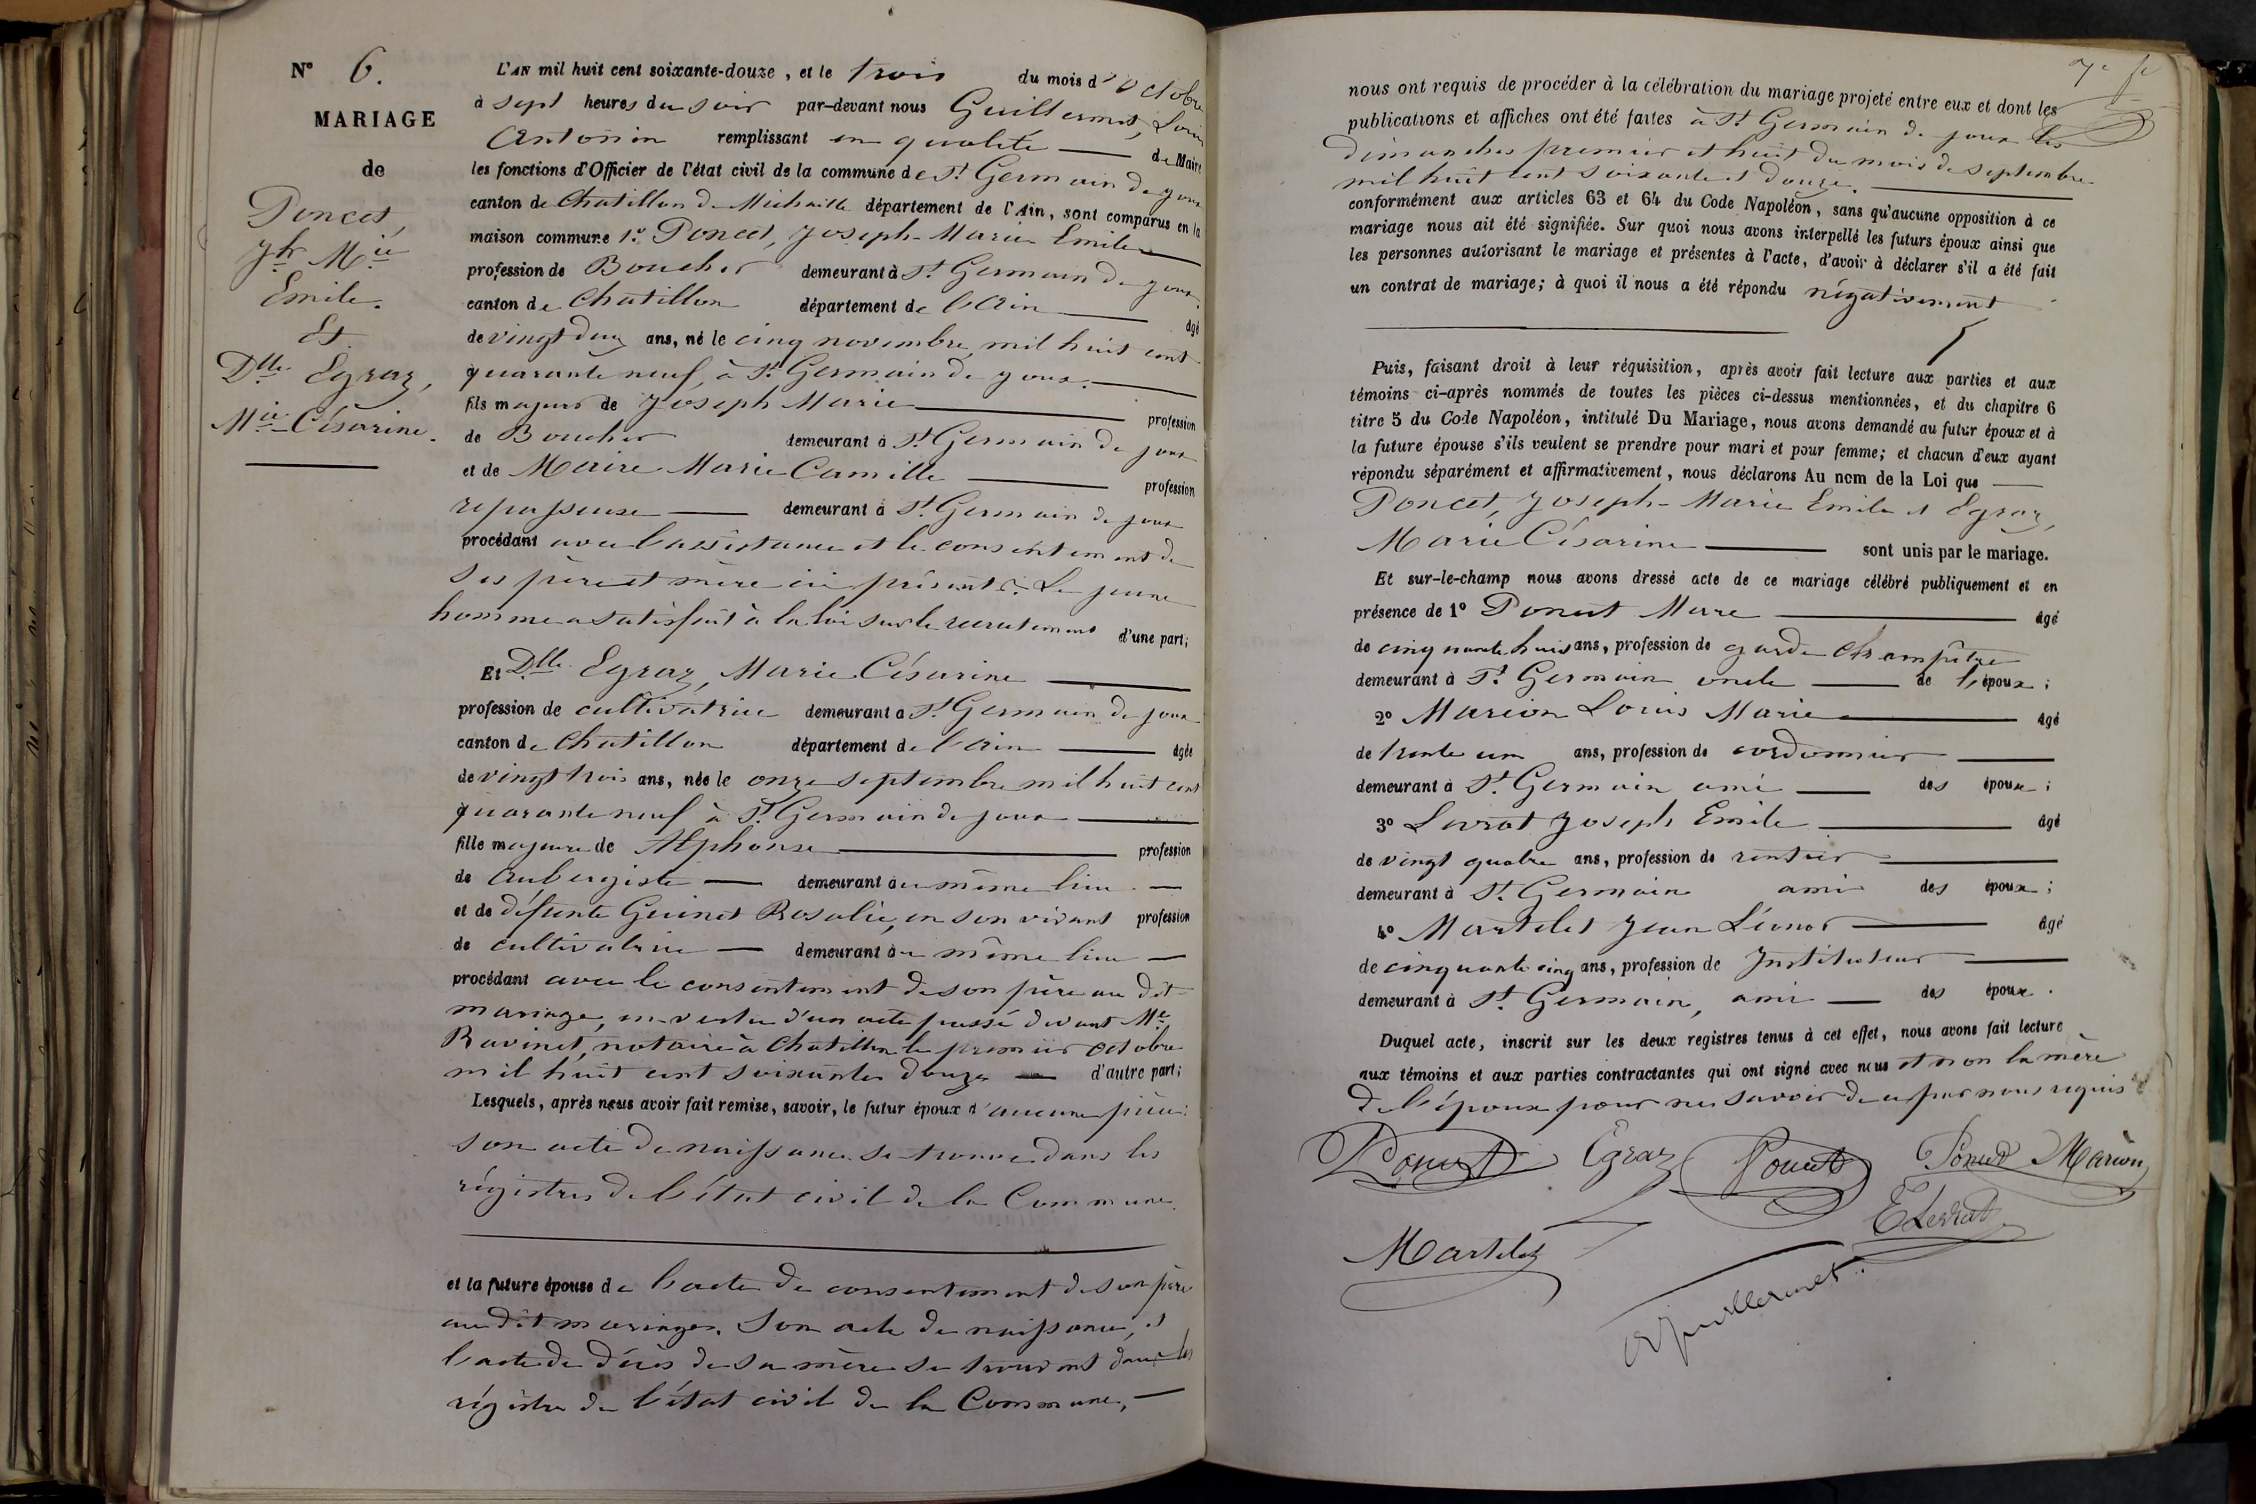 N° 6.
MARIAGE
de
Poncet,
Jh Mie
Emile.
Et
Dlle Egraz,
Mie Césarine.
L'AN mil huit cent soixante-douze, et le trois du mois d'Octobre
à sept heures du soir par-devant nous Guillermet, Louis
Antonin remplissant en qualité de Maire
les fonctions d'Officier de l'état civil de la commune de St Germain de joux
canton de Chatillon de Michaille département de l'Ain, sont comparus en la
maison commune 1° Poncet, Joseph-Marie Emile
profession de Boucher demeurant à St Germain de joux.
canton de Chatillon département de l'Ain âgé
de vingt deux ans, né le cinq novembre mil huit cent
quarante neuf, à St Germain de joux.
fils majeur de Joseph Marie profession
de Boucher demeurant à St Germain de joux
et de Maire Marie Camille profession
repasseuse demeurant à St Germain de joux
procédant avec l'assistance et le consentement de
ses père et mère ici présents. Le jeune
homme a satisfait à la loi sur le recrutement d'une part;
Et Dlle Egraz, Marie Césarine
profession de cultivatrice demeurant à St Germain de joux
canton de Chatillon département de l'Ain âgée
de vingt trois ans, née le onze septembre mil huit cent
quarante neuf à St Germain de joux
fille majeure de Alphonse profession
de aubergiste demeurant au même lieu
et de défunte Guinet Rosalie, en son vivant profession
de cultivatrice demeurant au même lieu
procédant avec le consentement de son père au dit
mariage, en vertu d'un acte passé devant Me
Ravinet, notaire à Chatillon le premier octobre
mil huit cent soixante douze d'autre part;
Lesquels, après nous avoir fait remise, savoir, le futur époux d'aucune pièce:
son acte de naissance se trouve dans les
régistres de l'état civil de la Commune.
et la future épouse de l'acte de consentement de son père
au dit mariage. Son acte de naissance, et
l'acte de décès de sa mère se trouvent dans les
régistre de l'état civil de la Commune,
7e f
nous ont requis de procéder à la célébration du mariage projeté entre eux et dont les
publications et affiches ont été faites à St Germain de joux les
dimanches premier et huit du mois de septembre
mil huit cent soixante et douze.
conformément aux articles 63 et 64 du Code Napoléon, sans qu'aucune opposition à ce
mariage nous ait été signifiée. Sur quoi nous avons interpellé les futurs époux ainsi que
les personnes autorisant le mariage et présentes à l'acte, d'avoir à déclarer s'il a été fait
un contrat de mariage; à quoi il nous a été répondu négativement
Puis, faisant droit à leur réquisition, après avoir fait lecture aux parties et aux
témoins ci-après nommés de toutes les pièces ci-dessus mentionnées, et du chapitre 6
titre 5 du Code Napoléon, intitulé Du Mariage, nous avons demandé au futur époux et à
la future épouse s'ils veulent se prendre pour mari et pour femme; et chacun d'eux ayant
répondu séparément et affirmativement, nous déclarons Au nom de la Loi que
Poncet, Joseph-Marie Emile et Egraz,
Marie Césarine sont unis par le mariage.
Et sur-le-champ nous avons dressé acte de ce mariage célébré publiquement et en
présence de 1° Poncet Marie âgé
de cinquante huit ans, profession de garde champêtre
demeurant à St Germain oncle de l'époux;
2° Marion Louis Marie âgé
de trente un ans, profession de cordonnier
demeurant à St Germain ami des époux;
3° Levrat Joseph Emile âgé
de vingt quatre ans, profession de rentier
demeurant à St Germain ami des époux;
4° Martelet Jean Léonor âgé
de cinquante cinq ans, profession de Instituteur
demeurant à St Germain, ami des époux.
Duquel acte, inscrit sur les deux registres tenus à cet effet, nous avons fait lecture
aux témoins et aux parties contractantes qui ont signé avec nous et non la mère
de l'époux pour ne savoir de ce par nous requis
Poncet Egraz Poncet Poncet Marion
Martelet E Levrat
Guillermet